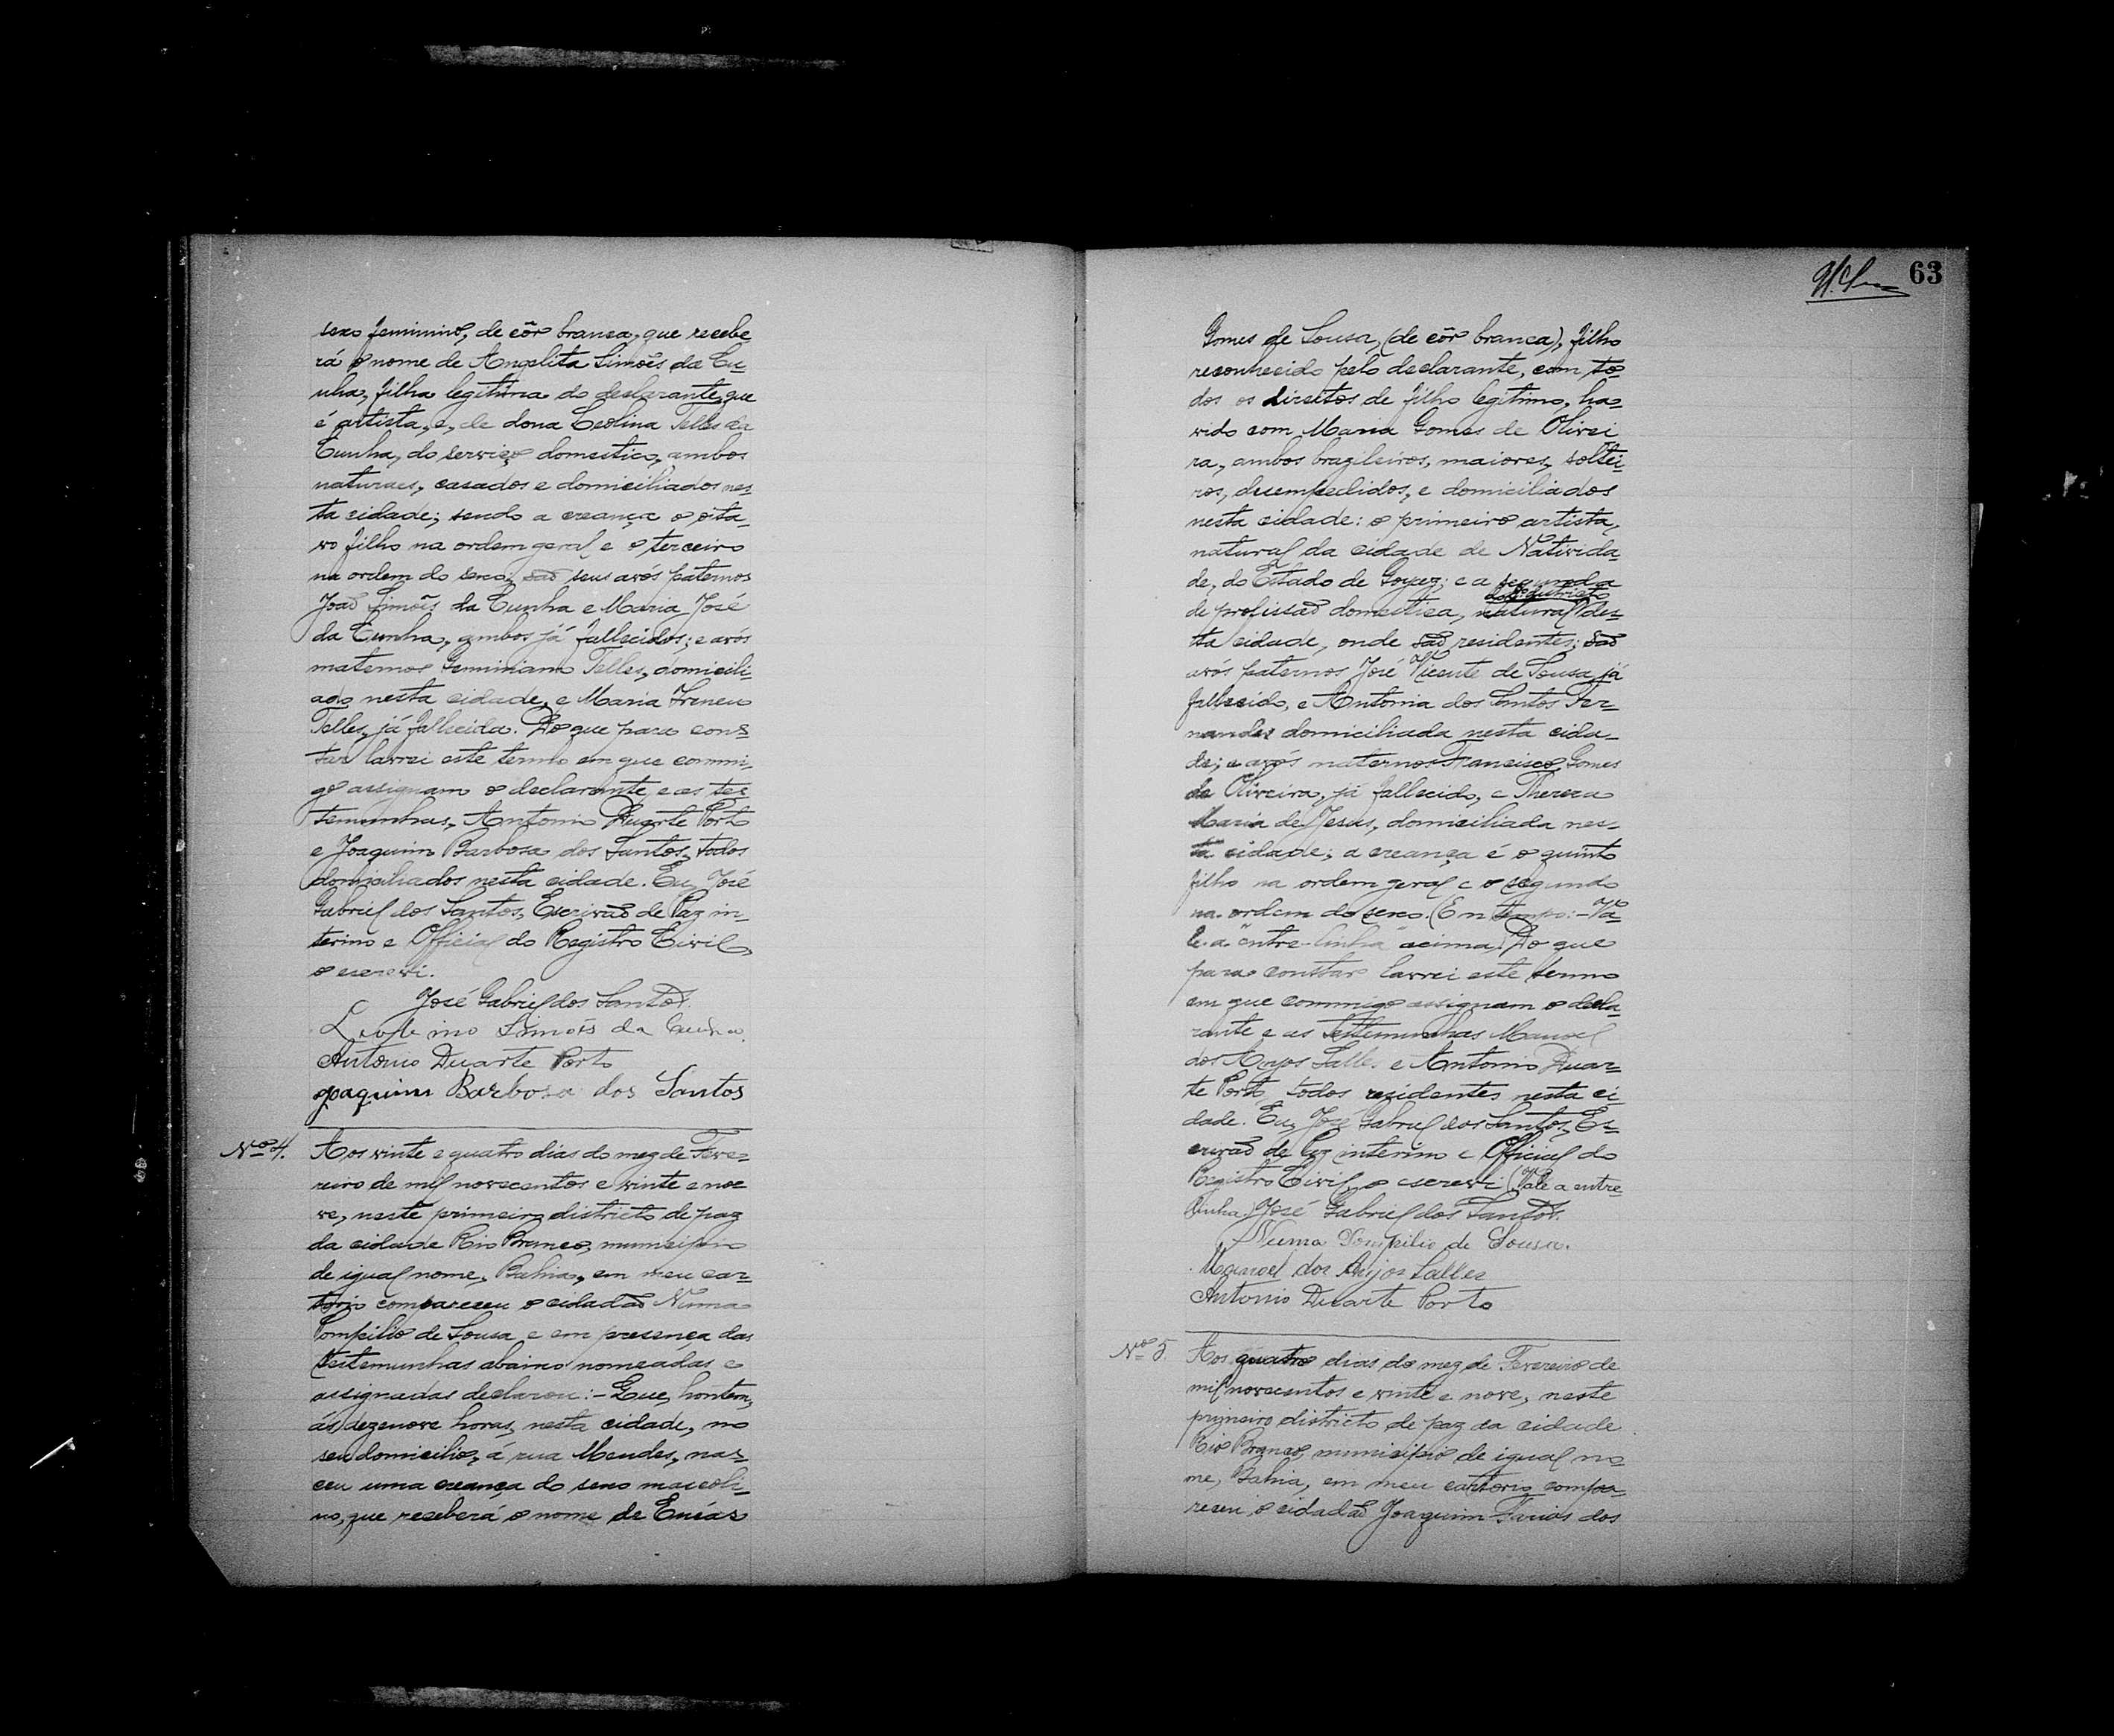 sexo feminino, de côr branca, que recebe
rá o nome de Angelita Simões da Cu-
nha, filha legitima do declarante, que
é artista, e, de dona Leolina Telles da
Cunha, do serviço domestico, ambos
naturaes, casados e domiciliados nes-
ta cidade; sendo a creança o oita-
vo filho na ordem geral e o terceiro
na ordem do sexo; são seus avós paternos
João Simões da Cunha e Maria José
da Cunha, ambos já fallecidos; e avós
maternos Geminiano Telles, domicili-
ado nesta cidade, e Maria Irineu
Telles, já fallecida. Do que para cons
tar lavrei este termo em que commi-
go assignam o declarante e as tes
temunhas, Antonio Duarte Porto
e Joaquim Barbosa dos Santos, todos
domiciliados nesta cidade. Eu, José
Gabriel dos Santos, Escrivão de Paz in-
terino e Official do Registro Civil,
o escrevi.
José Gabriel dos Santos.
Simões da Cunha.
Antonio Duarte Porto
Joaquim Barbosa dos Santos
Nº 4. Aos vinte e quatro dias do mez de Feve-
reiro de mil novecentos e vinte e no-
ve, neste primeiro districto de paz
da cidade Rio Branco, municipio
de igual nome, Bahia, em meu car-
torio compareceu o cidadão Numa
Pompilio de Sousa e em presença das
testemunhas abaixo nomeadas e
assignadas declarou:- Que, hontem,
ás dezenove horas, nesta cidade, no
seu domicilio, á rua Mendes, nas-
ceu uma creança do sexo masculi-
no, que receberá o nome de Enéas
63
Gomes de Sousa, (de côr branca), filho
reconhecido pelo declarante, com to-
dos os direitos de filho legitimo, ha-
vido com Maria Gomes de Olivei
ra, ambos brazileiros, maiores, soltei-
ros, desempedidos, e domiciliados
nesta cidade: o primeiro artista,
natural da cidade de Nativida-
de, do Estado de Goyaz; e a segunda
do districto
de profissão domestica, natural des-
ta cidade, onde são residentes; são
avós paternos José Vicente de Sousa, já
fallecido, e Antonia dos Santos Fer-
nandes domiciliada nesta cida-
de; e avós maternos Francisco Gomes
de Oliveira, já fallecido, e Thereza
Maria de Jesus, domiciliada nes-
ta cidade; a creança é o quinto
filho na ordem geral e o segundo
na ordem do sexo. (Em tempo:- Va-
le a "entre-linha" acima). Do que
para constar lavrei este termo
em que commigo assignam o decla-
rante e as testemunhas Manoel
dos Anjos Salles e Antonio Duar-
te Porto, todos residentes nesta ci-
dade. Eu, José Gabriel dos Santos, Es-
crivão de Paz interino e Official do
Registro Civil, o escrevi (Vale a entre-
linha.) José Gabriel dos Santos.
Numa Pompilio de Sousa.
Manoel dos Anjos Salles
Antonio Duarte Porto
Nº 5. Aos quatro dias do mez de Fevereiro de
mil novecentos e vinte e nove, neste
primeiro districto de paz da cidade
Rio Branco, municipio de igual no-
me, Bahia, em meu cartorio compa-
receu o cidadão Joaquim Farias dos